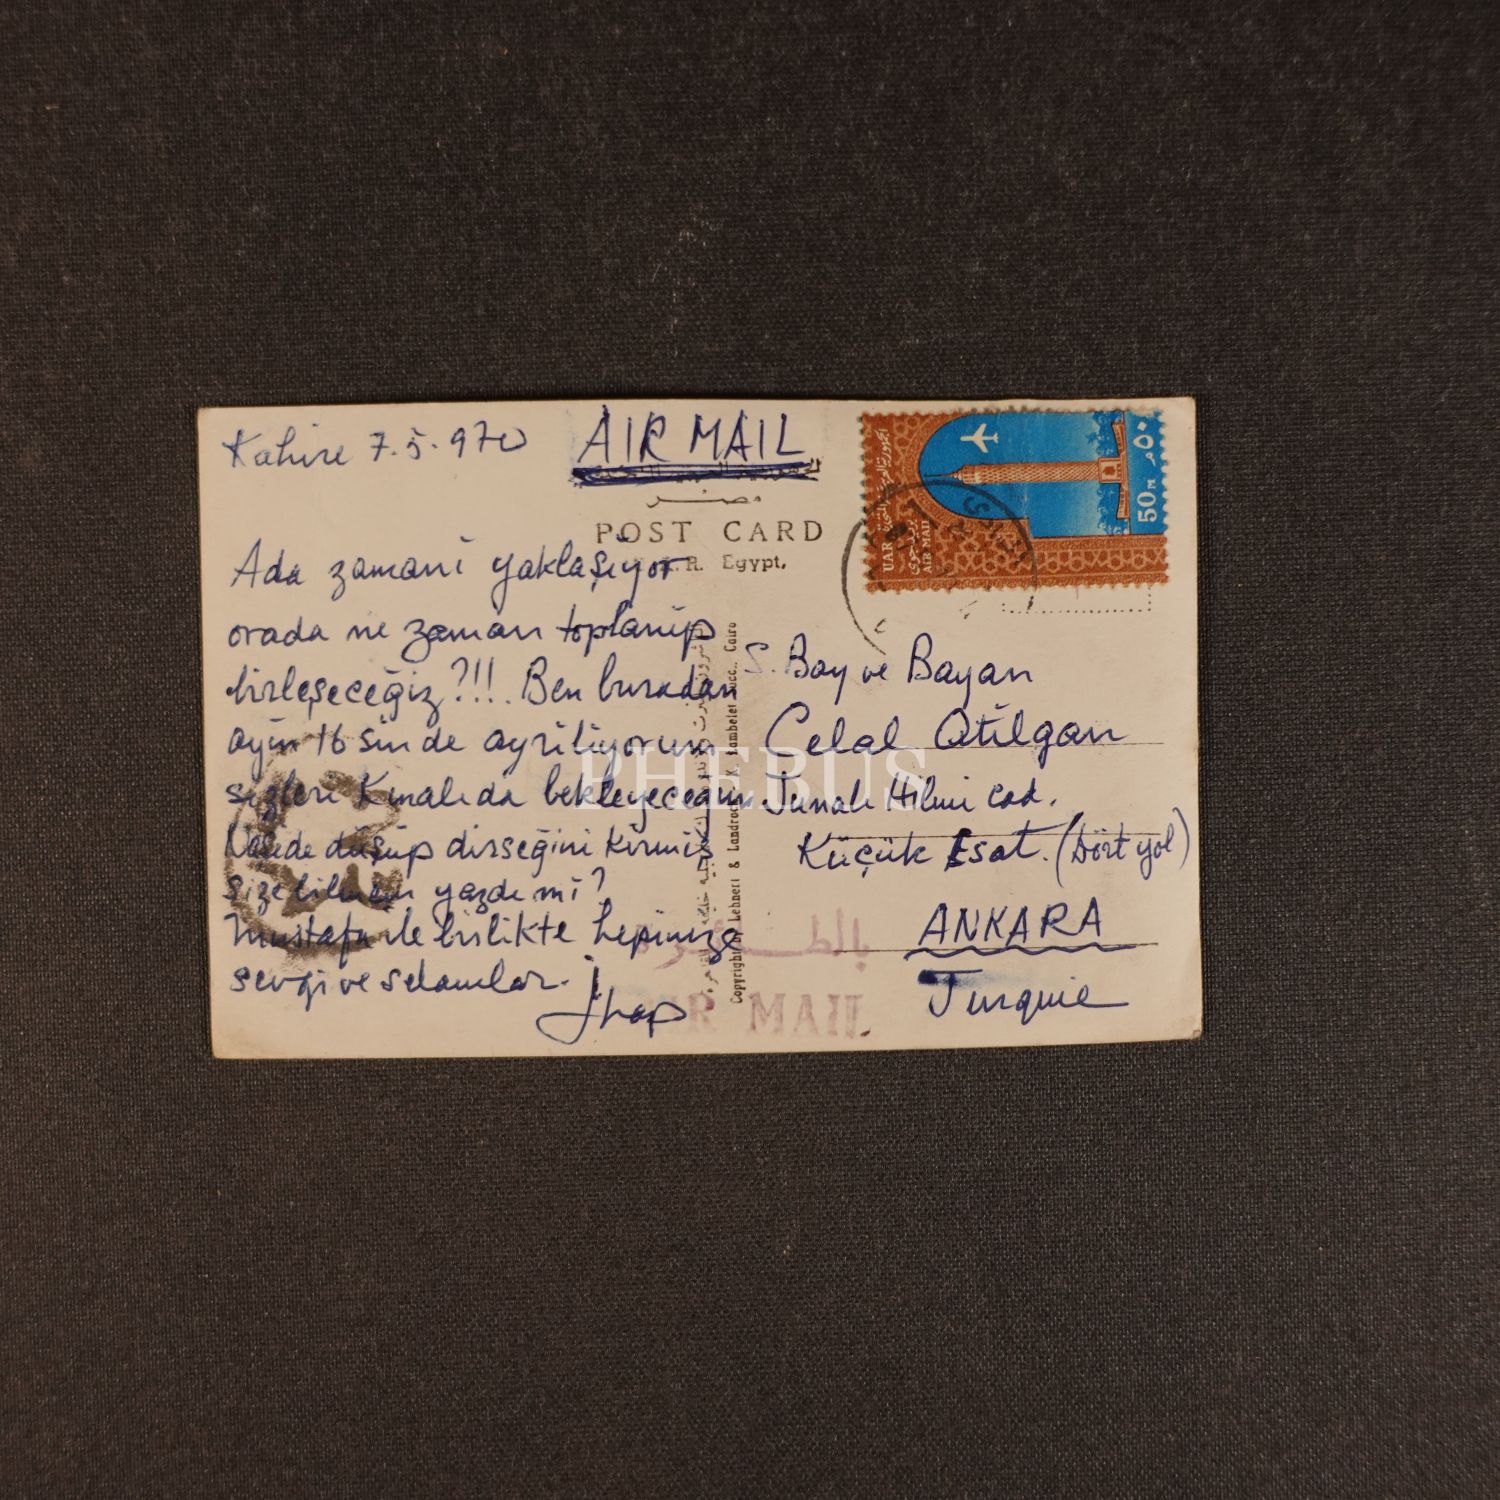 Kahire 7.5.970
AIR MAIL
مصر
POST CARD
Egypt.
Ada zamanı yaklaşıyor
orada ne zaman toplanıp
birleşeceğiz?!!. Ben buradan
ayın 16 sinde ayrılıyorum
sizleri Kınalıda bekleyeceğim
düşüp dirseğini kırmış
size bilmem yazdı mı?
Mustafa ile birlikte hepinize
sevgi ve selamlar.
S. Bay ve Bayan
Celal Atılgan
Tunalı Hilmi cad.
Küçük Esat. (Dört yol)
ANKARA
Turquie
UAR
AIR MAIL
50 M
٥٠ م
Copyright by Lehnert & Landrock, K. Lambelet Succ., Cairo
AIR MAIL
PHEBUS